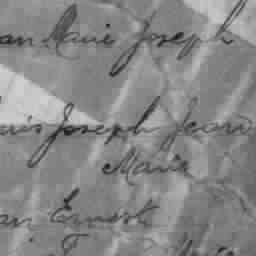 an Marie Joseph
ouis Joseph Jean
Marie
an Ernest